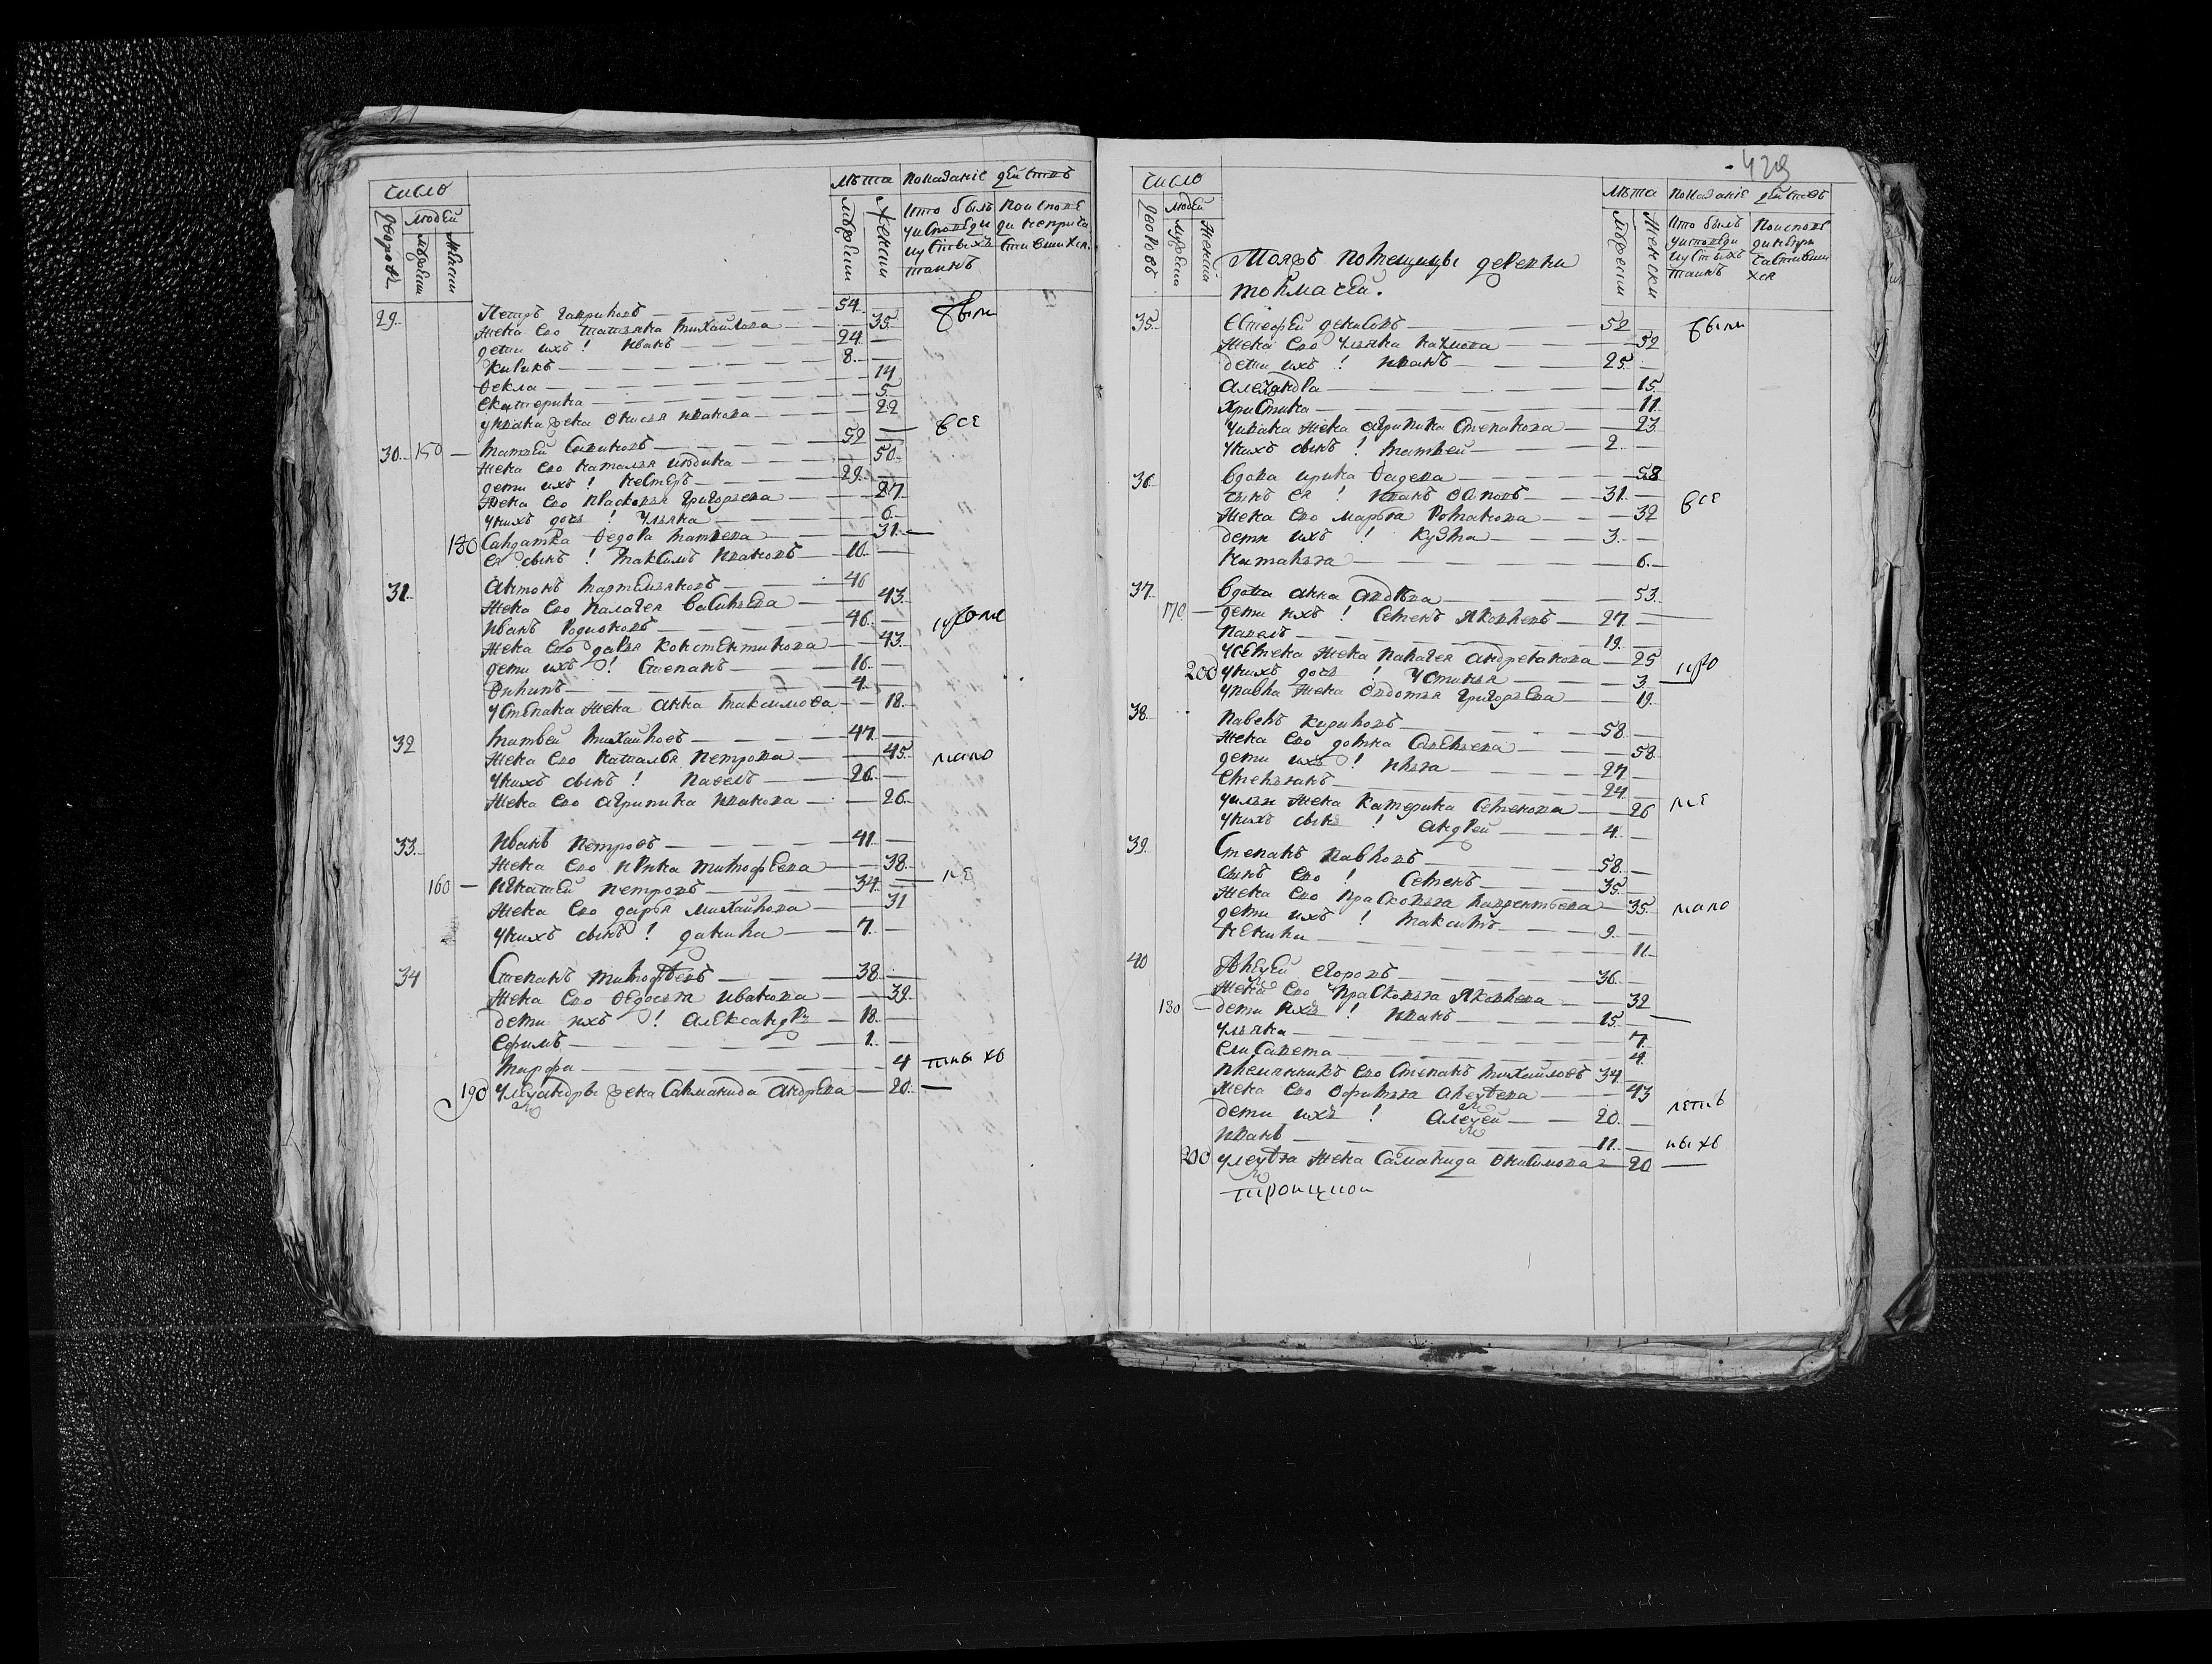 Число
Лѣта Показаніе действъ
дворовъ людей
мужеска женска
мужески женски
Кто былъ у исповѣди и у святыхъ таинъ
По исповѣди не причастившихся
29. Петръ Гавриловъ 54 были
Жена его Татьяна Михайлова 35
дети ихъ! Иванъ 24
Кирикъ 8
Фекла 14
Екатерина 5
у Ивана жена Анисья Иванова 22
30. 150 Матвей 52 все
Жена его Наталья 50
дети ихъ! Несторъ 29
Жена его Прасковья Григорьева 27
у нихъ дочь! Ульяна 6
180 Салдатка Федора Матвева 31
ея сынъ! Максимъ Ивановъ 10
31. Антонъ 46
Жена его Палагея Васильева 43
Иванъ Родионовъ 46
Жена его Дарья Константинова 43
дети ихъ! Степанъ 16
Филипъ 4
У Степана жена Анна Максимова 18
32 Матвей Михайловъ 47
Жена его Наталья Петрова 45
у нихъ сынъ! Павелъ 26
Жена его Агрипина Иванова 26
33. Иванъ Петровъ 41
Жена его Ирина Тимофеева 38
160 Игнатей Петровъ 34
Жена его Дарья Михайлова 31
у нихъ сынъ! Данила 7
34 Степанъ Тимофѣевъ 38
Жена его Федосья Иванова 39
дети ихъ! Александръ 18
Ефимъ 1
Марфа 4
190 У Александры жена Саломанида Андрѣева 20
428
Число
Лѣта Показаніе действъ
дворовъ людей
мужеска женска
мужески женски
Кто былъ у исповеди и у святыхъ таинъ
По исповеди не причастившихся
Тояжъ помещицы деревни
Толмачей.
35. Евстафей Денисовъ 52 были
Жена его Ульяна Наумова 52
дети ихъ! Иванъ 25
Александра 15
Христина 11
у Ивана жена Агрипина Степанова 23
у нихъ сынъ! Матвей 2
36. Вдова Ирина Фадеева 58
сынъ ея! Иванъ 31 все
Жена его Марфа Романова 32
дети ихъ! Кузма 3
Наталья 6
37. Вдова Анна 53
170 дети ихъ! Семенъ Яковлевъ 27
Павелъ 19
у Семена жена Палагея Андреанова 25
200 у нихъ дочь! Устинья 3
у Павла жена Авдотья Григорьева 19
38. Павелъ 58
Жена его Домна Савельева 58
дети ихъ! Илья 27
Емельянъ 24
у Ильи жена Катерина Семенова 26
у нихъ сынъ! Андрей 4
39. Степанъ Павловъ 58
сынъ его! Семенъ 35
Жена его Прасковья Лаврентьева 35
дети ихъ! Максимъ 9
11
40 Алексей Егоровъ 36
Жена его Прасковья Яковлева 32
180 дети ихъ! Иванъ 15
Ульяна 7
Елисавета 4
племянникъ его Степанъ Михайловъ 34
Жена его Офимья Алексѣева 43
дети ихъ! Алексей 20
Иванъ 11
200 у Алексѣя жена Саломанида Онисимова 20